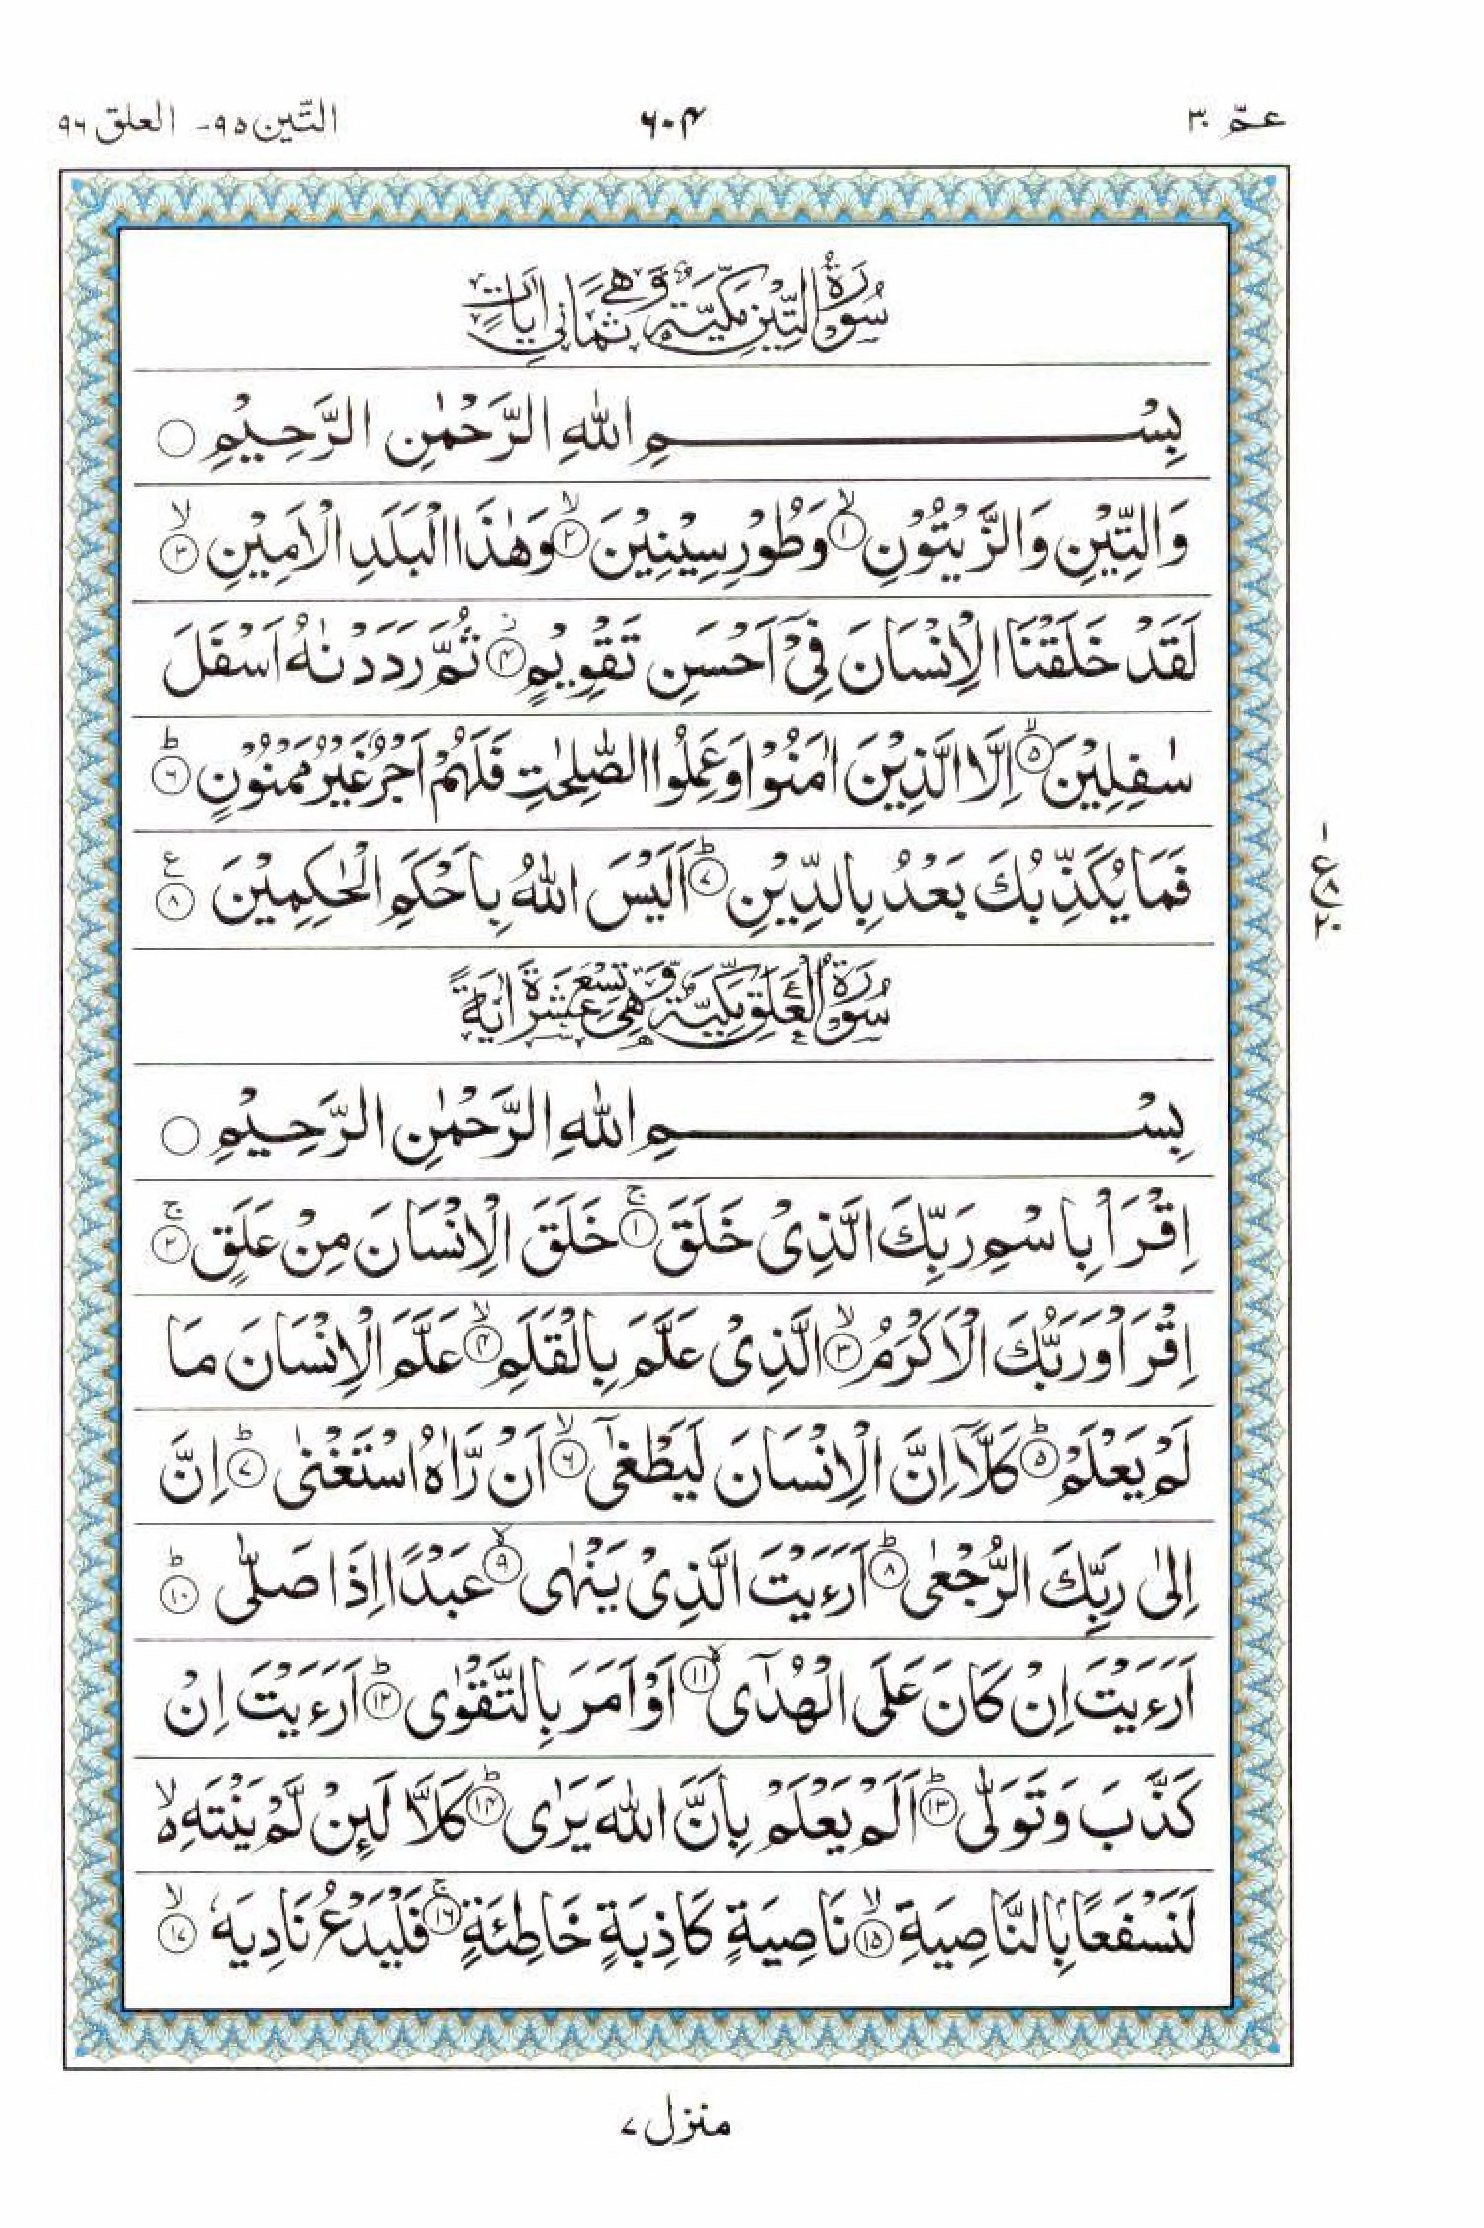 عمّ ٣٠
٦٠٤
التّين ٩٥- العلق ٩٦
سُوْرَةُ التِّيْنِ مَكِّيَّةٌ وَّهِيَ ثَمَانِي اٰيَاتٍ
بِسْمِ اللّٰهِ الرَّحْمٰنِ الرَّحِيْمِ ○
وَالتِّيْنِ وَالزَّيْتُوْنِ ۙ﴿١﴾ وَطُوْرِ سِيْنِيْنَ ۙ﴿٢﴾ وَهٰذَا الْبَلَدِ الْاَمِيْنِ ۙ﴿٣﴾
لَقَدْ خَلَقْنَا الْاِنْسَانَ فِيْٓ اَحْسَنِ تَقْوِيْمٍ ؗ﴿٤﴾ ثُمَّ رَدَدْنٰهُ اَسْفَلَ
سٰفِلِيْنَ ۙ﴿٥﴾ اِلَّا الَّذِيْنَ اٰمَنُوْا وَعَمِلُوا الصّٰلِحٰتِ فَلَهُمْ اَجْرٌ غَيْرُ مَمْنُوْنٍ ؕ﴿٦﴾
فَمَا يُكَذِّبُكَ بَعْدُ بِالدِّيْنِ ؕ﴿٧﴾ اَلَيْسَ اللّٰهُ بِاَحْكَمِ الْحٰكِمِيْنَ ﴿٨﴾ ع
١
ع ٨
٢٠
سُوْرَةُ الْعَلَقِ مَكِّيَّةٌ وَّهِيَ تِسْعَ عَشْرَةَ اٰيَةً
بِسْمِ اللّٰهِ الرَّحْمٰنِ الرَّحِيْمِ ○
اِقْرَاْ بِاسْمِ رَبِّكَ الَّذِيْ خَلَقَ ۚ﴿١﴾ خَلَقَ الْاِنْسَانَ مِنْ عَلَقٍ ۚ﴿٢﴾
اِقْرَاْ وَرَبُّكَ الْاَكْرَمُ ۙ﴿٣﴾ الَّذِيْ عَلَّمَ بِالْقَلَمِ ۙ﴿٤﴾ عَلَّمَ الْاِنْسَانَ مَا
لَمْ يَعْلَمْ ؕ﴿٥﴾ كَلَّآ اِنَّ الْاِنْسَانَ لَيَطْغٰٓى ۙ﴿٦﴾ اَنْ رَّاٰهُ اسْتَغْنٰى ؕ﴿٧﴾ اِنَّ
اِلٰى رَبِّكَ الرُّجْعٰى ؕ﴿٨﴾ اَرَءَيْتَ الَّذِيْ يَنْهٰى ۙ﴿٩﴾ عَبْدًا اِذَا صَلّٰى ؕ﴿١٠﴾
اَرَءَيْتَ اِنْ كَانَ عَلَى الْهُدٰٓى ۙ﴿١١﴾ اَوْ اَمَرَ بِالتَّقْوٰى ؕ﴿١٢﴾ اَرَءَيْتَ اِنْ
كَذَّبَ وَتَوَلّٰى ؕ﴿١٣﴾ اَلَمْ يَعْلَمْ بِاَنَّ اللّٰهَ يَرٰى ؕ﴿١٤﴾ كَلَّا لَئِنْ لَّمْ يَنْتَهِ ۙ۬
لَنَسْفَعًا بِالنَّاصِيَةِ ۙ﴿١٥﴾ نَاصِيَةٍ كَاذِبَةٍ خَاطِئَةٍ ۚ﴿١٦﴾ فَلْيَدْعُ نَادِيَهٗ ۙ﴿١٧﴾
منزل ٧